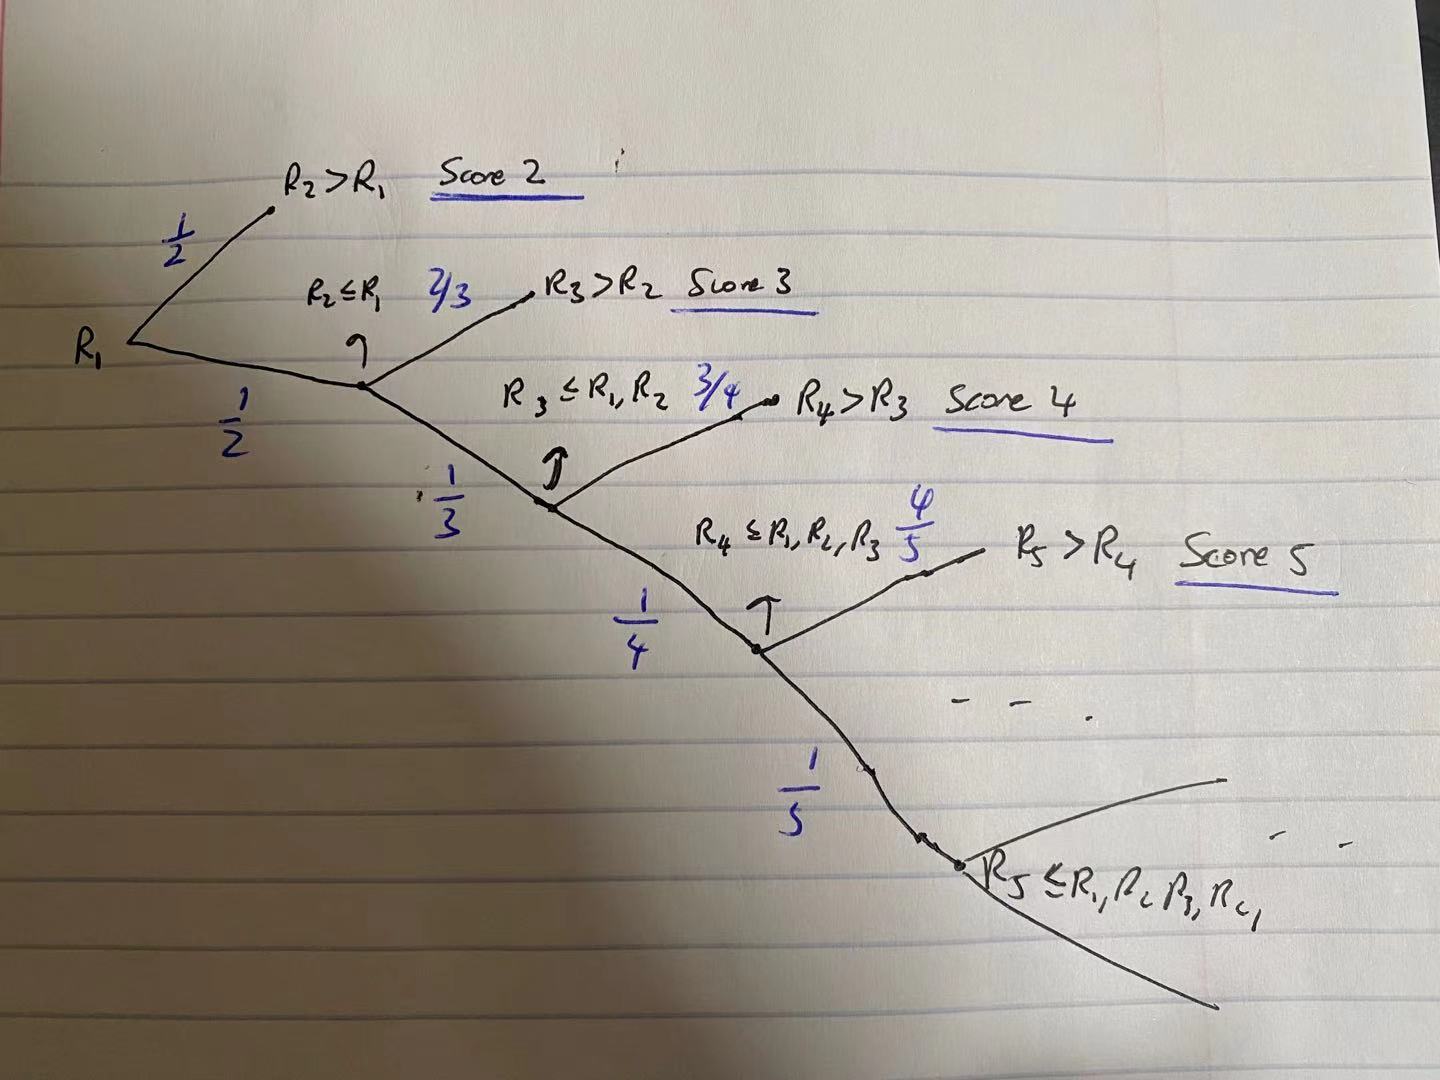 R₂ > R₁ Score 2
1/2
R₂ ≤ R₁ 2/3 R₃ > R₂ Score 3
R₁
1/2
R₃ ≤ R₁, R₂ 3/4 R₄ > R₃ Score 4
1/3
R₄ ≤ R₁, R₂, R₃ 4/5 R₅ > R₄ Score 5
1/4
1/5
R₅ ≤ R₁, R₂ R₃, R₄,